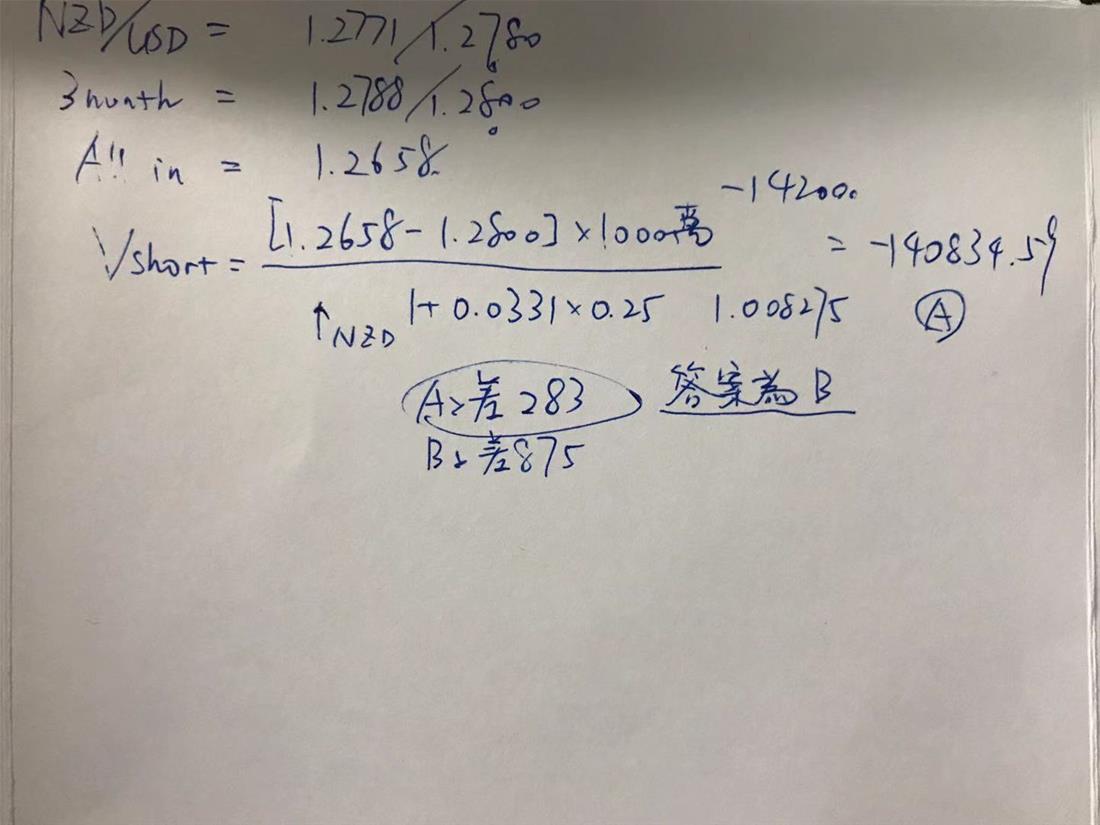 NZD/USD = 1.2771/1.2780
3 month = 1.2788/1.2800
All in = 1.2658
Vshort = [1.2658 - 1.2800] × 1000萬 / 1 + 0.0331 × 0.25 -142000 / 1.008275 = -140834.59
↑NZD A
A> 差 283 答案為 B
B> 差 875